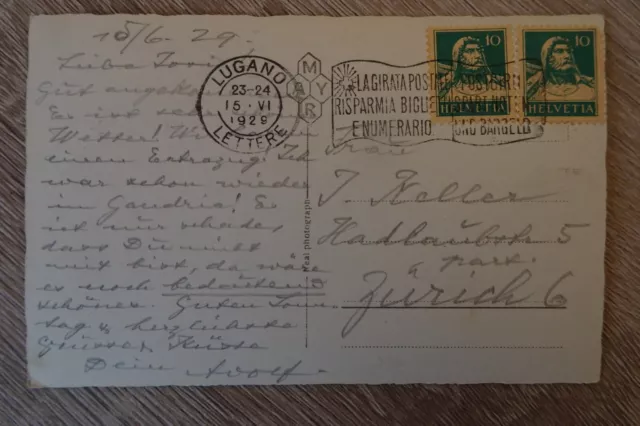 15/6. 29.
Gut angekommen
Es ist sehr
Wetter! Wir
einem Extrazug. Ich
war schon wieder
in Gandria! Es
ist nur schade,
dass Du nicht
mit bist, da wäre
es noch bedeutend
schöner. Guten Sonn-
tag & herzlichste
Grüsse, Küsse
Dein Adolf.
LUGANO
23-24
15. VI
1929
LETTERE
MAYR
Real photograph
LA GIRATA POSTALE
RISPARMIA
E NUMERARIO
UND BARGELD
10
HELVETIA
10
HELVETIA
Frau
J. Keller
Hadlaubstr. 5
part.
Zürich 6